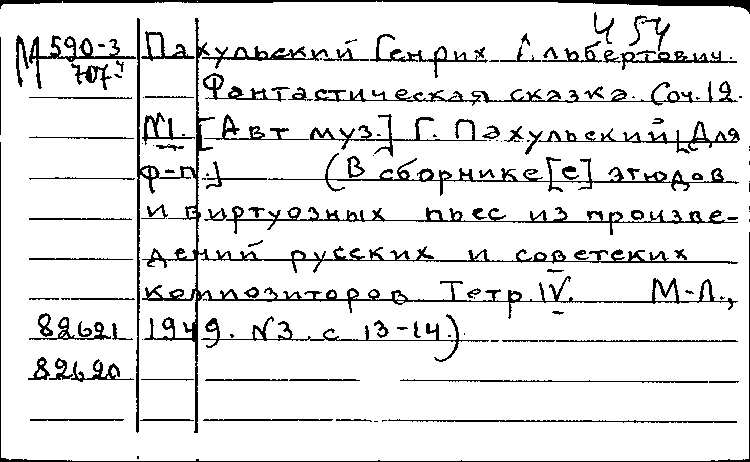 Ч 54
М 590-3 Пахульский Генрих Альбертович.
707 Фантастическая сказка. Соч. 12.
№1. [Авт муз.] Г. Пахульский [Для
ф-п.] (В сборнике [е] этюдов
и виртуозных пьес из произве-
дений русских и советских
композиторов Тетр. IV. М-Л.,
82621 1949. №3 с 13-14.)
82620